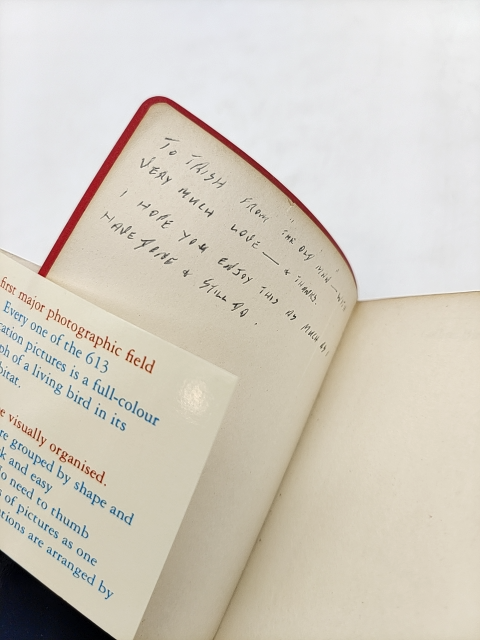 TO TRISH FROM "THE OLD MAN" — WITH
VERY MUCH LOVE — & THANKS.
I HOPE YOU ENJOY THIS AS MUCH AS I
HAVE DONE & STILL DO.
first major photographic field
Every one of the 613
cation pictures is a full-colour
ph of a living bird in its
bitat.
e visually organised.
re grouped by shape and
k and easy
o need to thumb
s of pictures as one
tions are arranged by